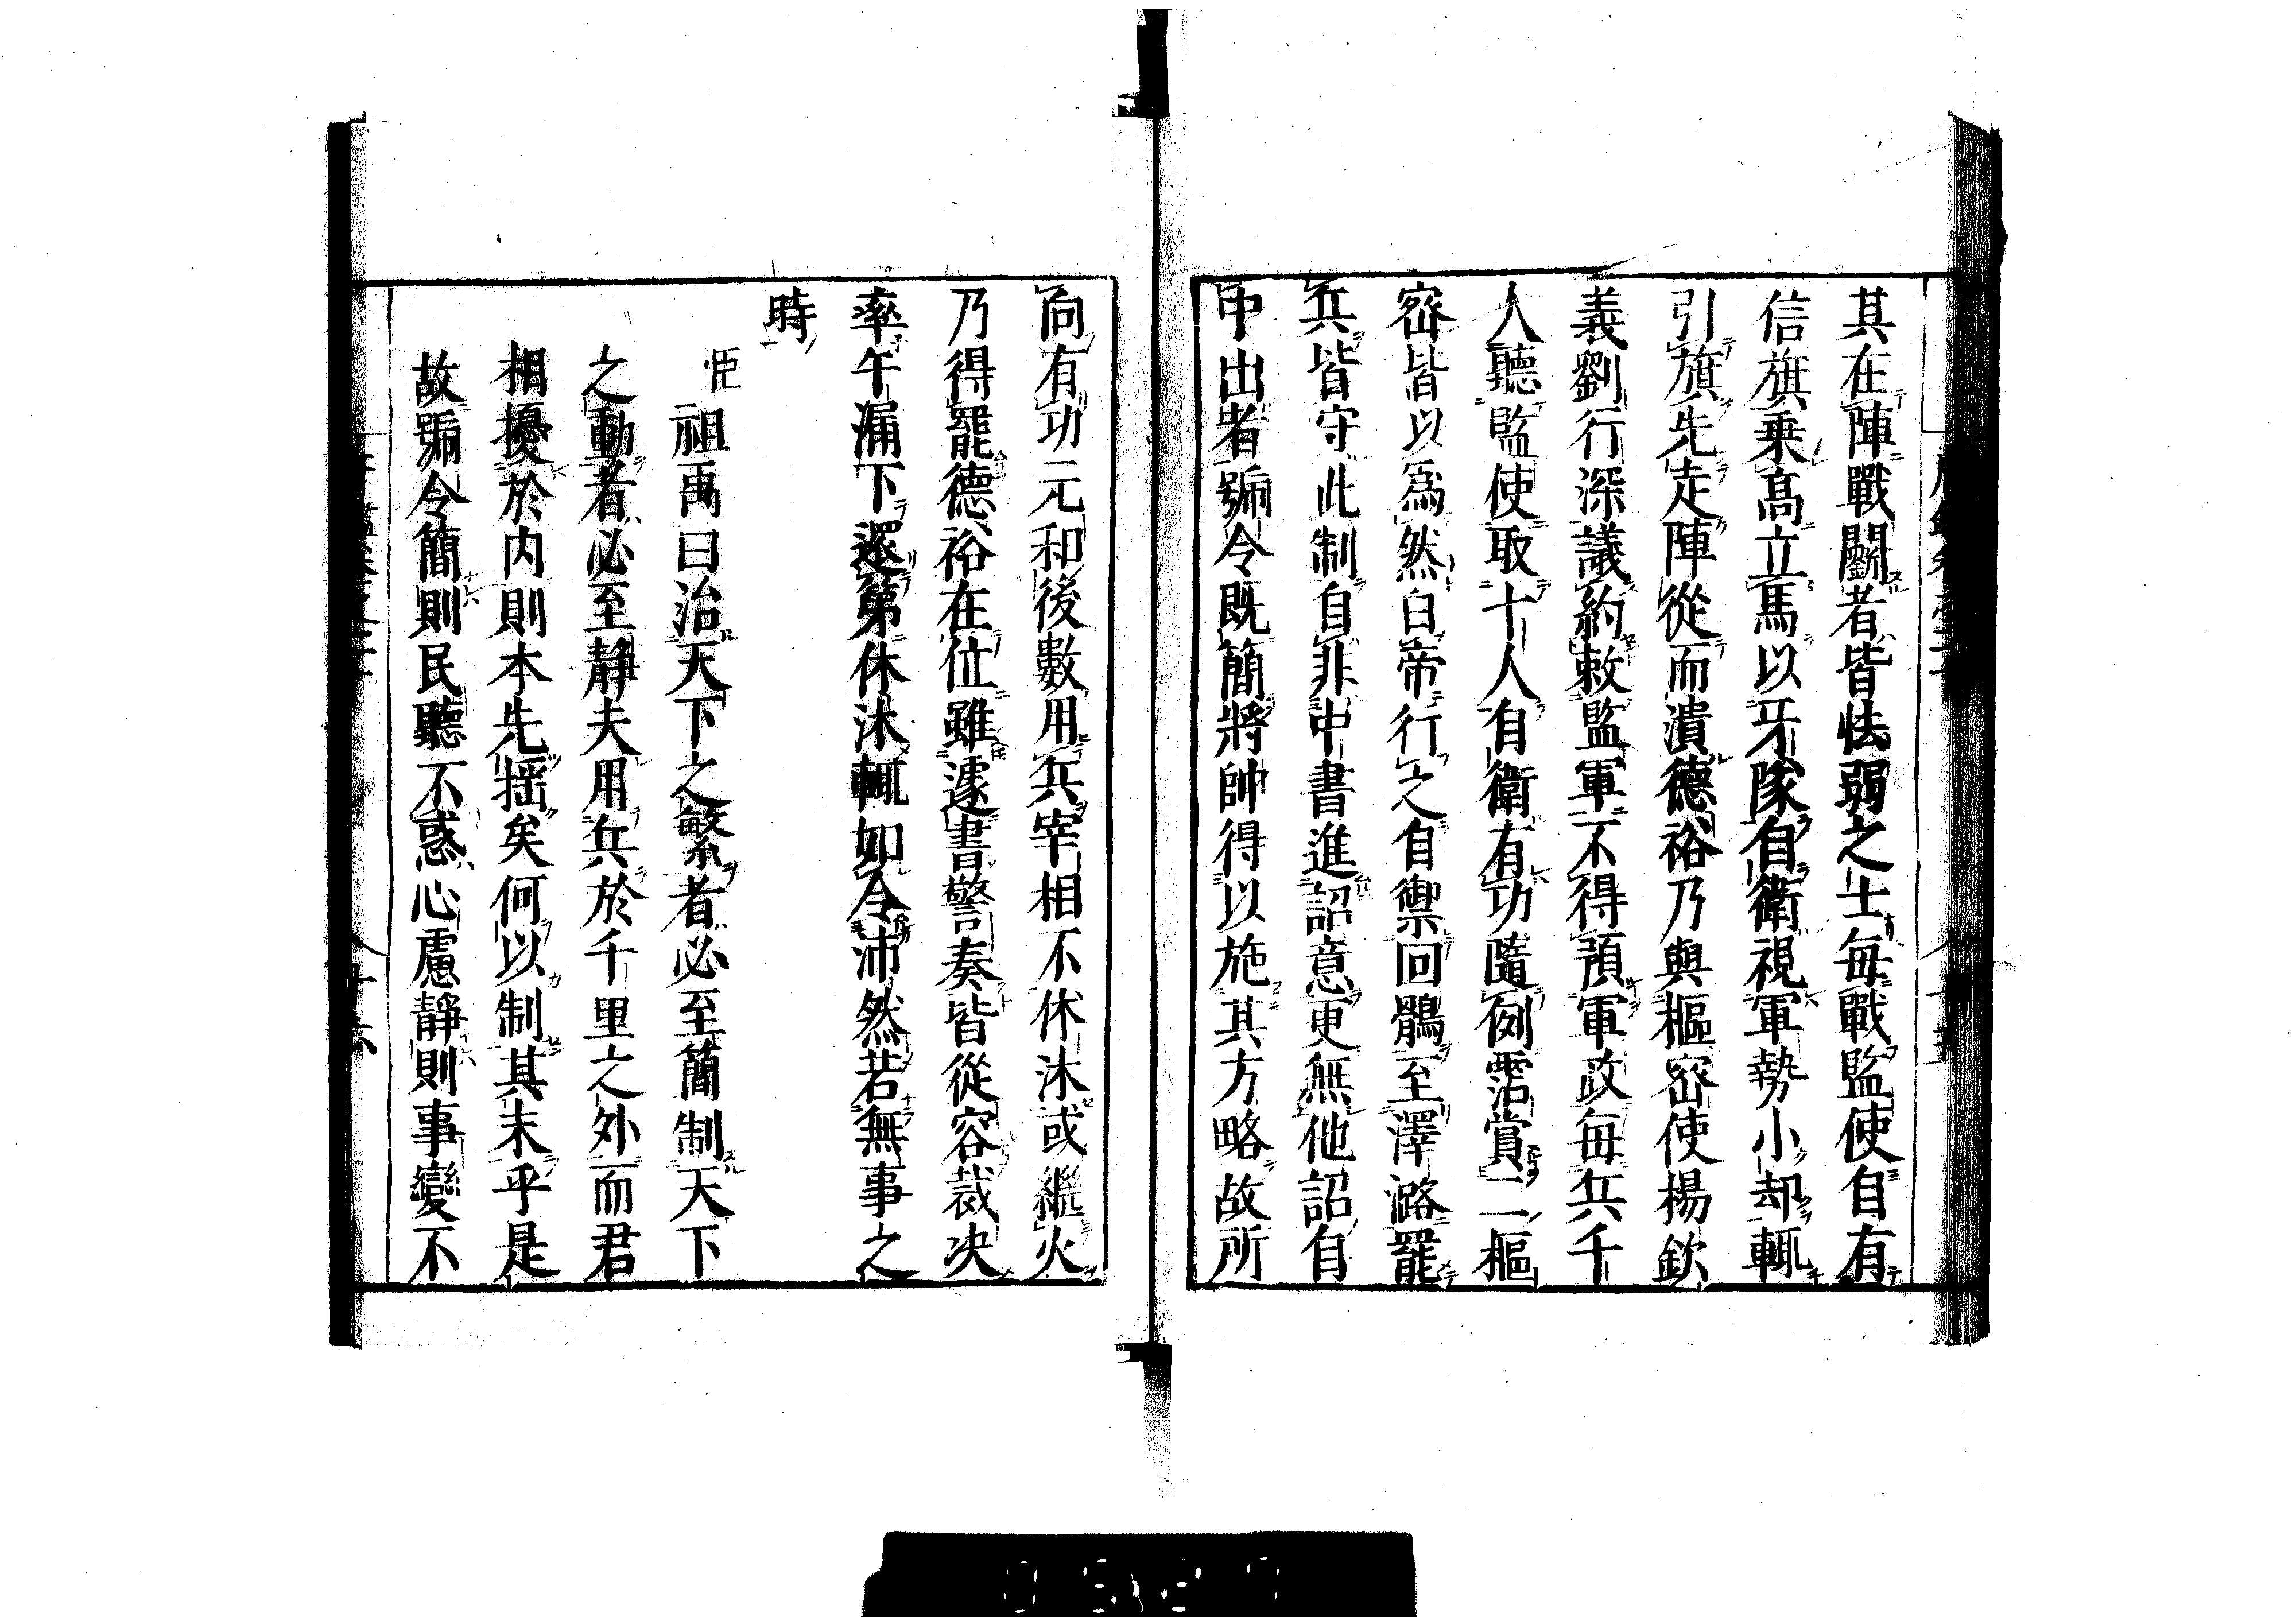 其在陣戰鬬者皆怯弱之士毎戰監使自有
信旗乗髙立馬以牙隊自衛視軍勢小却輒
引旗先走陣從而潰德裕乃與樞宻使楊欽
義劉行深議約敕監軍不得預軍政毎兵千
人聽監使取十人自衛有功隨例霑賞二樞
宻皆以爲然白帝行之自禦回鶻至澤潞罷
兵皆守此制自非中書進詔意更無他詔自
中出者號令既簡將帥得以施其方略故所
向有功元和後數用兵宰相不休沐或繼火
乃得罷德裕在位雖遽書警奏皆從容裁决
率午漏下還第休沐輒如令沛然若無事之
時
臣祖禹曰治天下之繁者必至簡制天下
之動者必至静夫用兵於千里之外而君
相擾於内則本先揺矣何以制其末乎是
故號令簡則民聽不惑心慮静則事變不